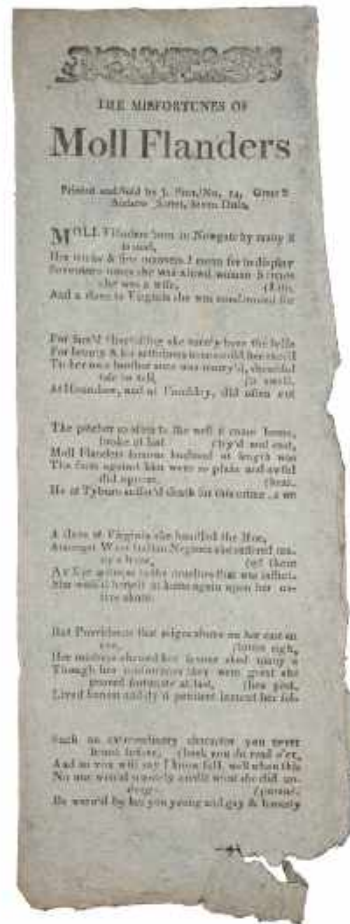 THE MISFORTUNES OF
Moll Flanders
Printed and sold by J. Pitts, No. 14, Great S
Andrew Street, Seven Dials.
MOLL Flanders born in Newgate by many it
is said,
Her tricks & fine manners I mean for to display
Seventeen times she was a lewd woman 5 times
she was a wife,
And a slave to Virginia she was condemned for
For she'd she surely bore the belle
For beauty &
To her own brother once was marry'd, shameful
tale to tell,
At Hounslow, and at Finchley, did often
The pitcher so often to the well it came home,
broke at last
Moll Flanders famous husband at length was
The facts against him were so plain and awful
did appear,
He at Tyburn suffer'd death for this crime
A slave at Virginia she handled the Hoe,
Amongst West Indian Negroes she suffered
(of them
An Eye witness to the cruelties that was inflict.
She wish'd herself at home again upon her na-
tive shore.
But Providence that reigns above on her cast an
eye,
Her mistress shewed her favour shed many a
Though her misfortunes they were great she
proved fortunate at last,
Lived honest and dy'd penitent
Such an extraordinary character you never
heard before, (book you do read o'er,
And so you will say I know full well when this
No one would scarcely credit what she did un-
dergo
Be warn'd by her you young and gay & honesty